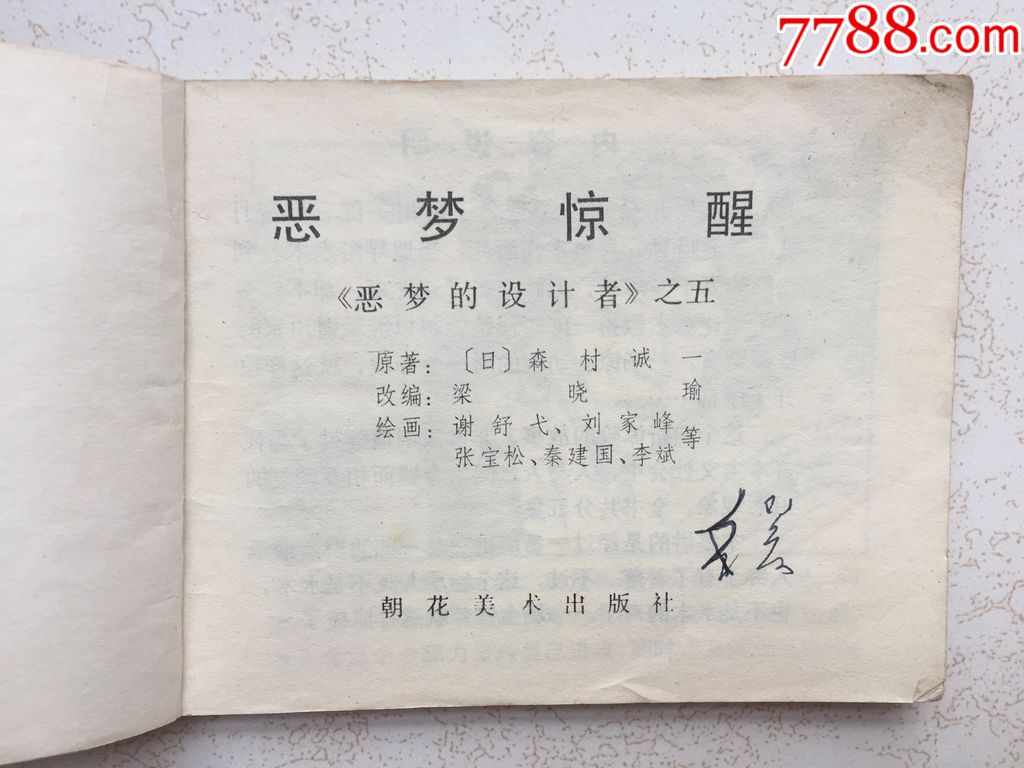 7788.com
恶梦惊醒
《恶梦的设计者》之五
原著：〔日〕森村诚一
改编：梁晓瑜
绘画：谢舒弋、刘家峰
张宝松、秦建国、李斌等
朝花美术出版社